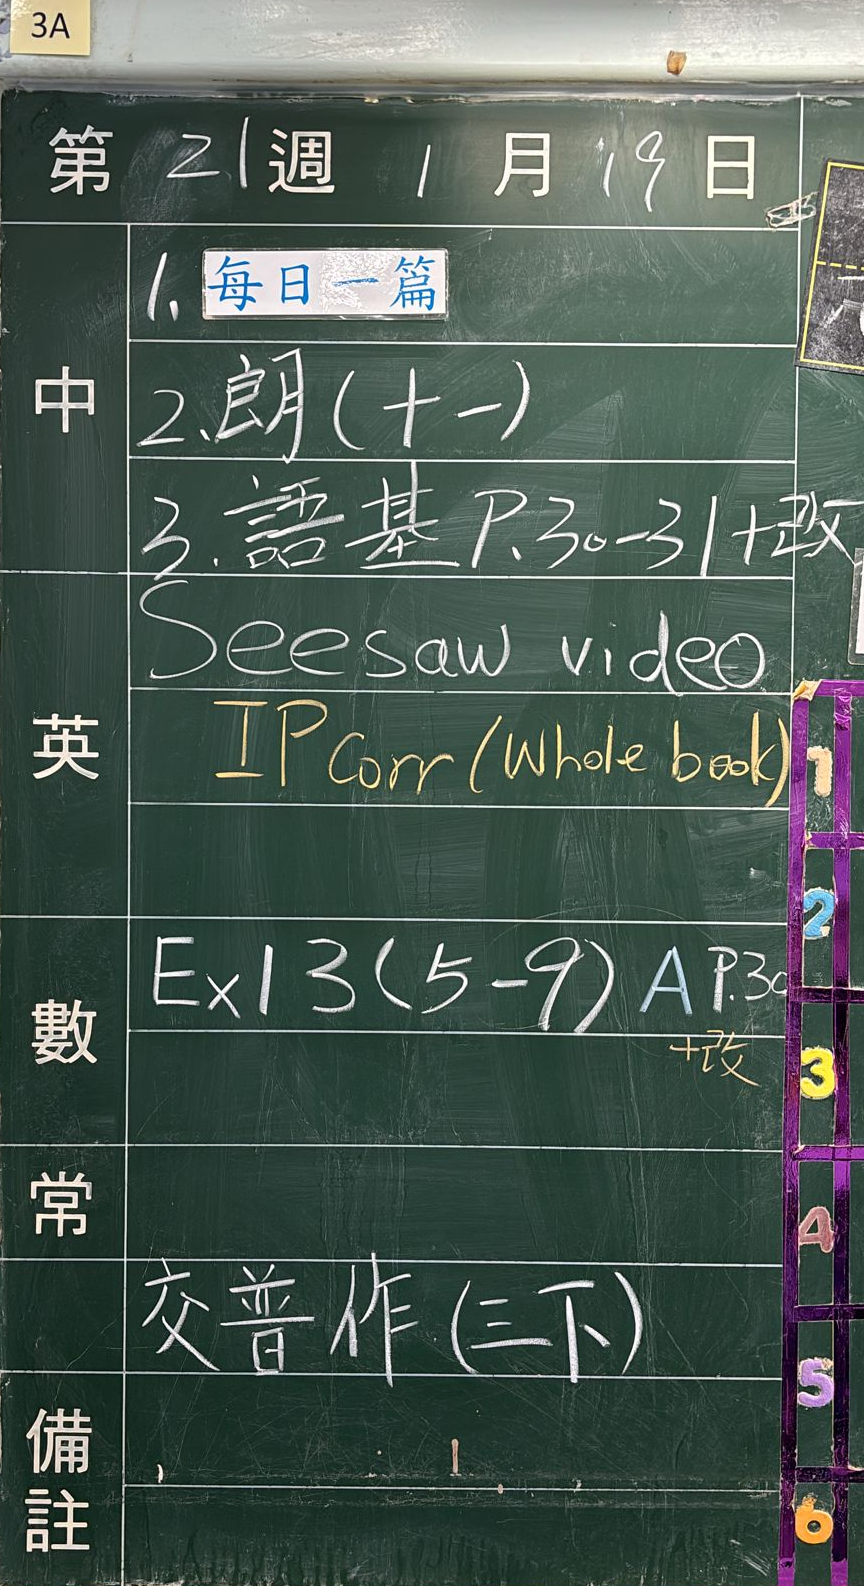 3A
第 21 週 1 月 19 日
中
1. 每日一篇
2. 朗(十一)
3. 語基 P.30-31+改
英
Seesaw video
IP Corr (Whole book)
數
Ex13(5-9) A P.30
+改
常
交普作(三下)
備註
1
2
3
4
5
6